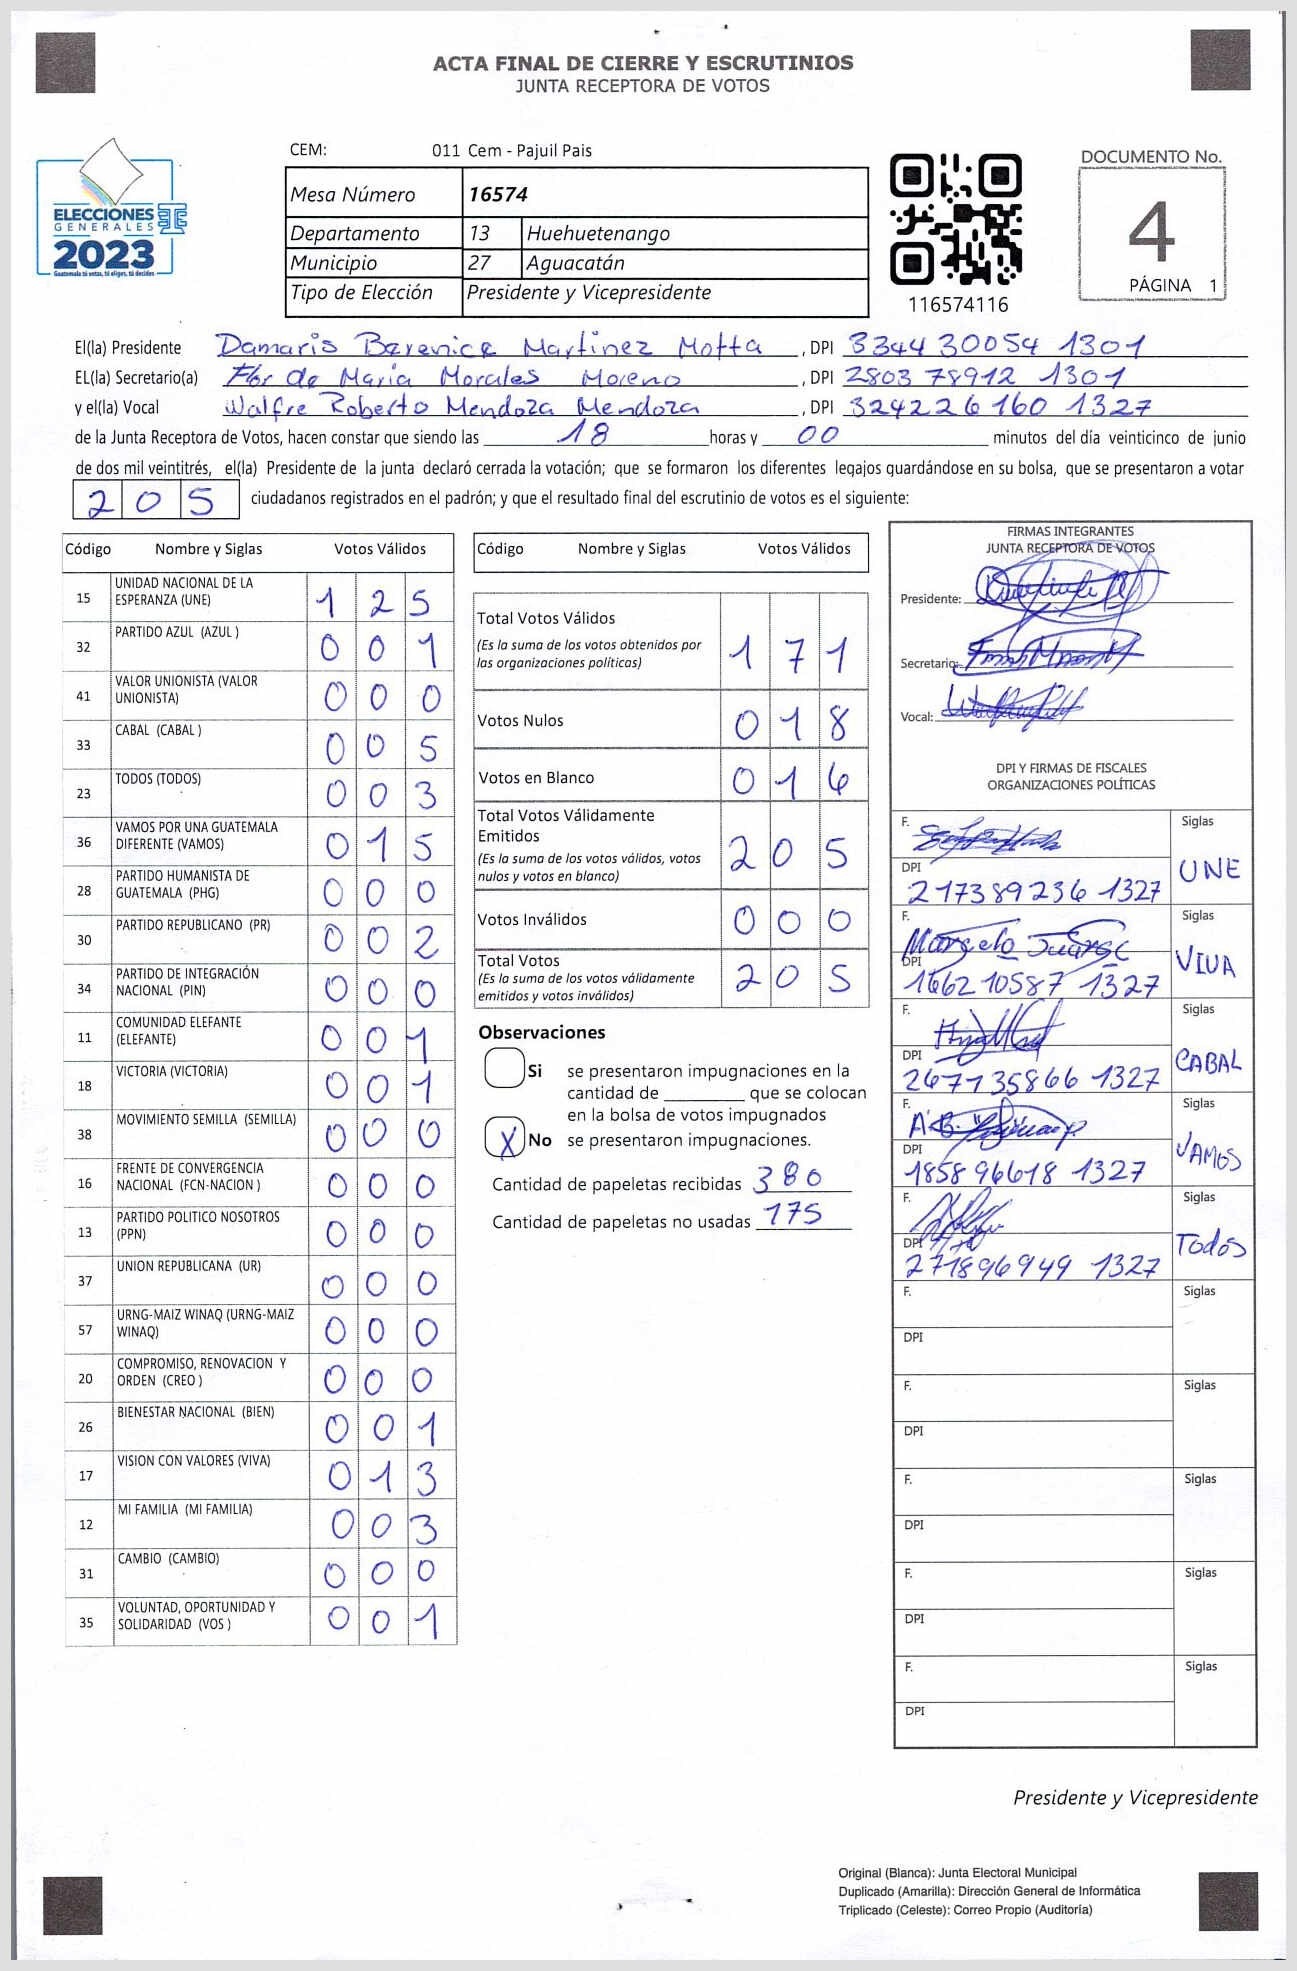 ACTA FINAL DE CIERRE Y ESCRUTINIOS
JUNTA RECEPTORA DE VOTOS
ELECCIONES
GENERALES
2023
Guatemala tú votas, tú eliges, tú decides
CEM: 011 Cem - Pajuil Pais
Mesa Número 16574
Departamento 13 Huehuetenango
Municipio 27 Aguacatán
Tipo de Elección Presidente y Vicepresidente
116574116
DOCUMENTO No.
4
PÁGINA 1
El(la) Presidente Damaris Berenice Martinez Motta, DPI 3344 30054 1301
EL(la) Secretario(a) Flor de Maria Morales Moreno, DPI 2803 78912 1301
y el(la) Vocal Walfre Roberto Mendoza Mendoza, DPI 3242 26160 1327
de la Junta Receptora de Votos, hacen constar que siendo las 18 horas y 00 minutos del día veinticinco de junio
de dos mil veintitrés, el(la) Presidente de la junta declaró cerrada la votación; que se formaron los diferentes legajos guardándose en su bolsa, que se presentaron a votar
205 ciudadanos registrados en el padrón; y que el resultado final del escrutinio de votos es el siguiente:
Código Nombre y Siglas Votos Válidos
15 UNIDAD NACIONAL DE LA ESPERANZA (UNE) 1 2 5
32 PARTIDO AZUL (AZUL ) 0 0 1
41 VALOR UNIONISTA (VALOR UNIONISTA) 0 0 0
33 CABAL (CABAL ) 0 0 5
23 TODOS (TODOS) 0 0 3
36 VAMOS POR UNA GUATEMALA DIFERENTE (VAMOS) 0 1 5
28 PARTIDO HUMANISTA DE GUATEMALA (PHG) 0 0 0
30 PARTIDO REPUBLICANO (PR) 0 0 2
34 PARTIDO DE INTEGRACIÓN NACIONAL (PIN) 0 0 0
11 COMUNIDAD ELEFANTE (ELEFANTE) 0 0 1
18 VICTORIA (VICTORIA) 0 0 1
38 MOVIMIENTO SEMILLA (SEMILLA) 0 0 0
16 FRENTE DE CONVERGENCIA NACIONAL (FCN-NACION ) 0 0 0
13 PARTIDO POLITICO NOSOTROS (PPN) 0 0 0
37 UNION REPUBLICANA (UR) 0 0 0
57 URNG-MAIZ WINAQ (URNG-MAIZ WINAQ) 0 0 0
20 COMPROMISO, RENOVACION Y ORDEN (CREO ) 0 0 0
26 BIENESTAR NACIONAL (BIEN) 0 0 1
17 VISION CON VALORES (VIVA) 0 1 3
12 MI FAMILIA (MI FAMILIA) 0 0 3
31 CAMBIO (CAMBIO) 0 0 0
35 VOLUNTAD, OPORTUNIDAD Y SOLIDARIDAD (VOS ) 0 0 1
Código Nombre y Siglas Votos Válidos
Total Votos Válidos 1 7 1
(Es la suma de los votos obtenidos por
las organizaciones políticas)
Votos Nulos 0 1 8
Votos en Blanco 0 1 6
Total Votos Válidamente
Emitidos 2 0 5
(Es la suma de los votos válidos, votos
nulos y votos en blanco)
Votos Inválidos 0 0 0
Total Votos 2 0 5
(Es la suma de los votos válidamente
emitidos y votos inválidos)
Observaciones
Si se presentaron impugnaciones en la
cantidad de ________ que se colocan
en la bolsa de votos impugnados
X No se presentaron impugnaciones.
Cantidad de papeletas recibidas 380
Cantidad de papeletas no usadas 175
FIRMAS INTEGRANTES
JUNTA RECEPTORA DE VOTOS
Presidente:
Secretario:
Vocal:
DPI Y FIRMAS DE FISCALES
ORGANIZACIONES POLÍTICAS
F. Siglas
DPI UNE
217389236 1327
F. Marcelo Siglas
DPI VIVA
1662 10587 1327
F. Siglas
DPI CABAL
2677 35866 1327
F. Siglas
DPI VAMOS
1858 96618 1327
F. Siglas
DPI Todos
271896949 1327
F. Siglas
DPI
F. Siglas
DPI
F. Siglas
DPI
F. Siglas
DPI
F. Siglas
DPI
Presidente y Vicepresidente
Original (Blanca): Junta Electoral Municipal
Duplicado (Amarilla): Dirección General de Informática
Triplicado (Celeste): Correo Propio (Auditoría)